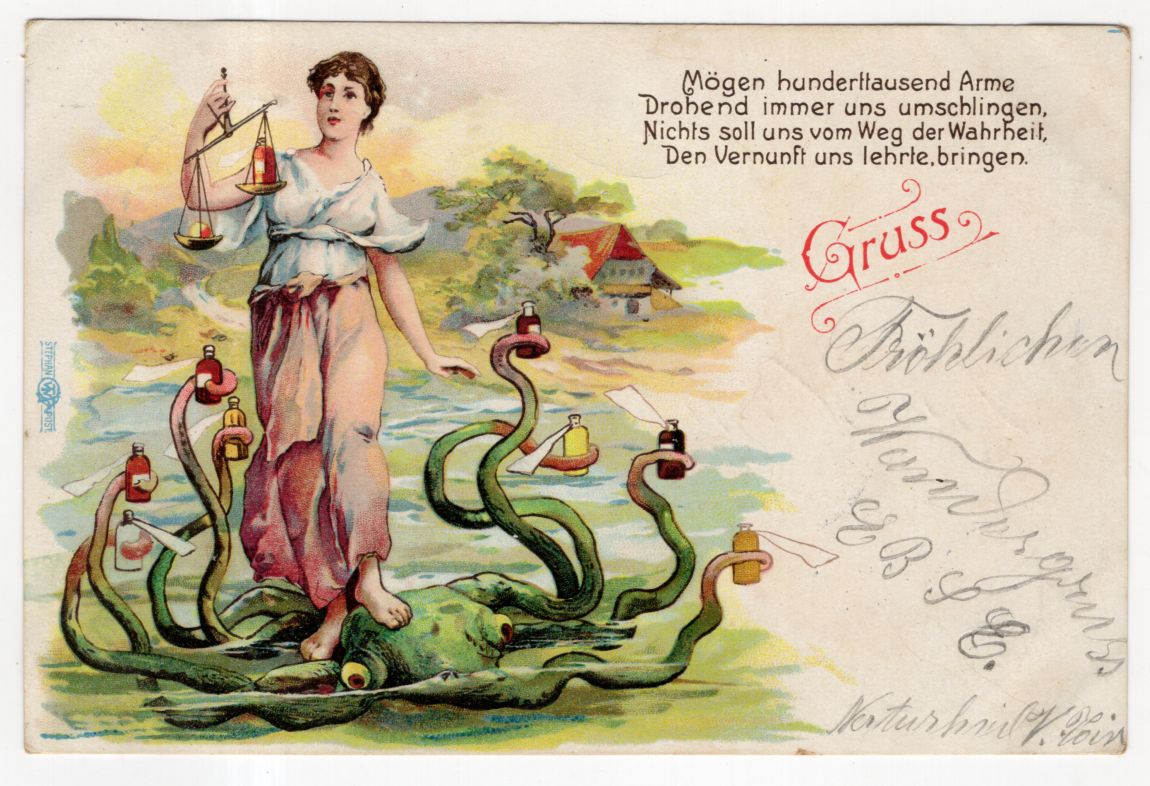 Mögen hunderttausend Arme
Drohend immer uns umschlingen,
Nichts soll uns vom Weg der Wahrheit,
Den Vernunft uns lehrte, bringen.
Gruss
Fröhlichen
Wandergruß
E B
E.
STEPHAN
PUST.